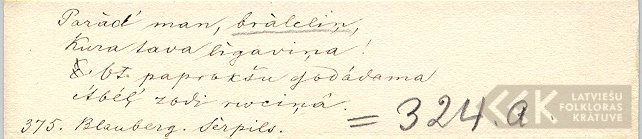 Parād' man, brāleliņ,
Kura tava līgaviņa!
Es bt paprakšu godādama
Ābēļ zodi rociņā.
375. Blauberg. Sērpils. = 324. a
LATVIEŠU
FOLKLORAS
KRĀTUVE